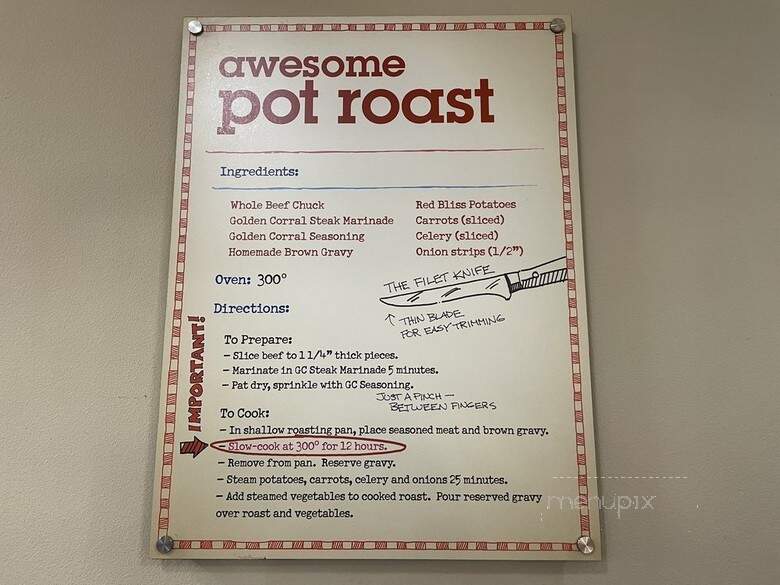 awesome
pot roast
Ingredients:
Whole Beef Chuck
Golden Corral Steak Marinade
Golden Corral Seasoning
Homemade Brown Gravy
Red Bliss Potatoes
Carrots (sliced)
Celery (sliced)
Onion strips (1/2")
Oven: 300°
THE FILET KNIFE
↑ THIN BLADE
FOR EASY TRIMMING
Directions:
IMPORTANT!
To Prepare:
- Slice beef to 1 1/4" thick pieces.
- Marinate in GC Steak Marinade 5 minutes.
- Pat dry, sprinkle with GC Seasoning.
JUST A PINCH —
BETWEEN FINGERS
To Cook:
- In shallow roasting pan, place seasoned meat and brown gravy.
- Slow-cook at 300° for 12 hours.
- Remove from pan. Reserve gravy.
- Steam potatoes, carrots, celery and onions 25 minutes.
- Add steamed vegetables to cooked roast. Pour reserved gravy
over roast and vegetables.
menupix